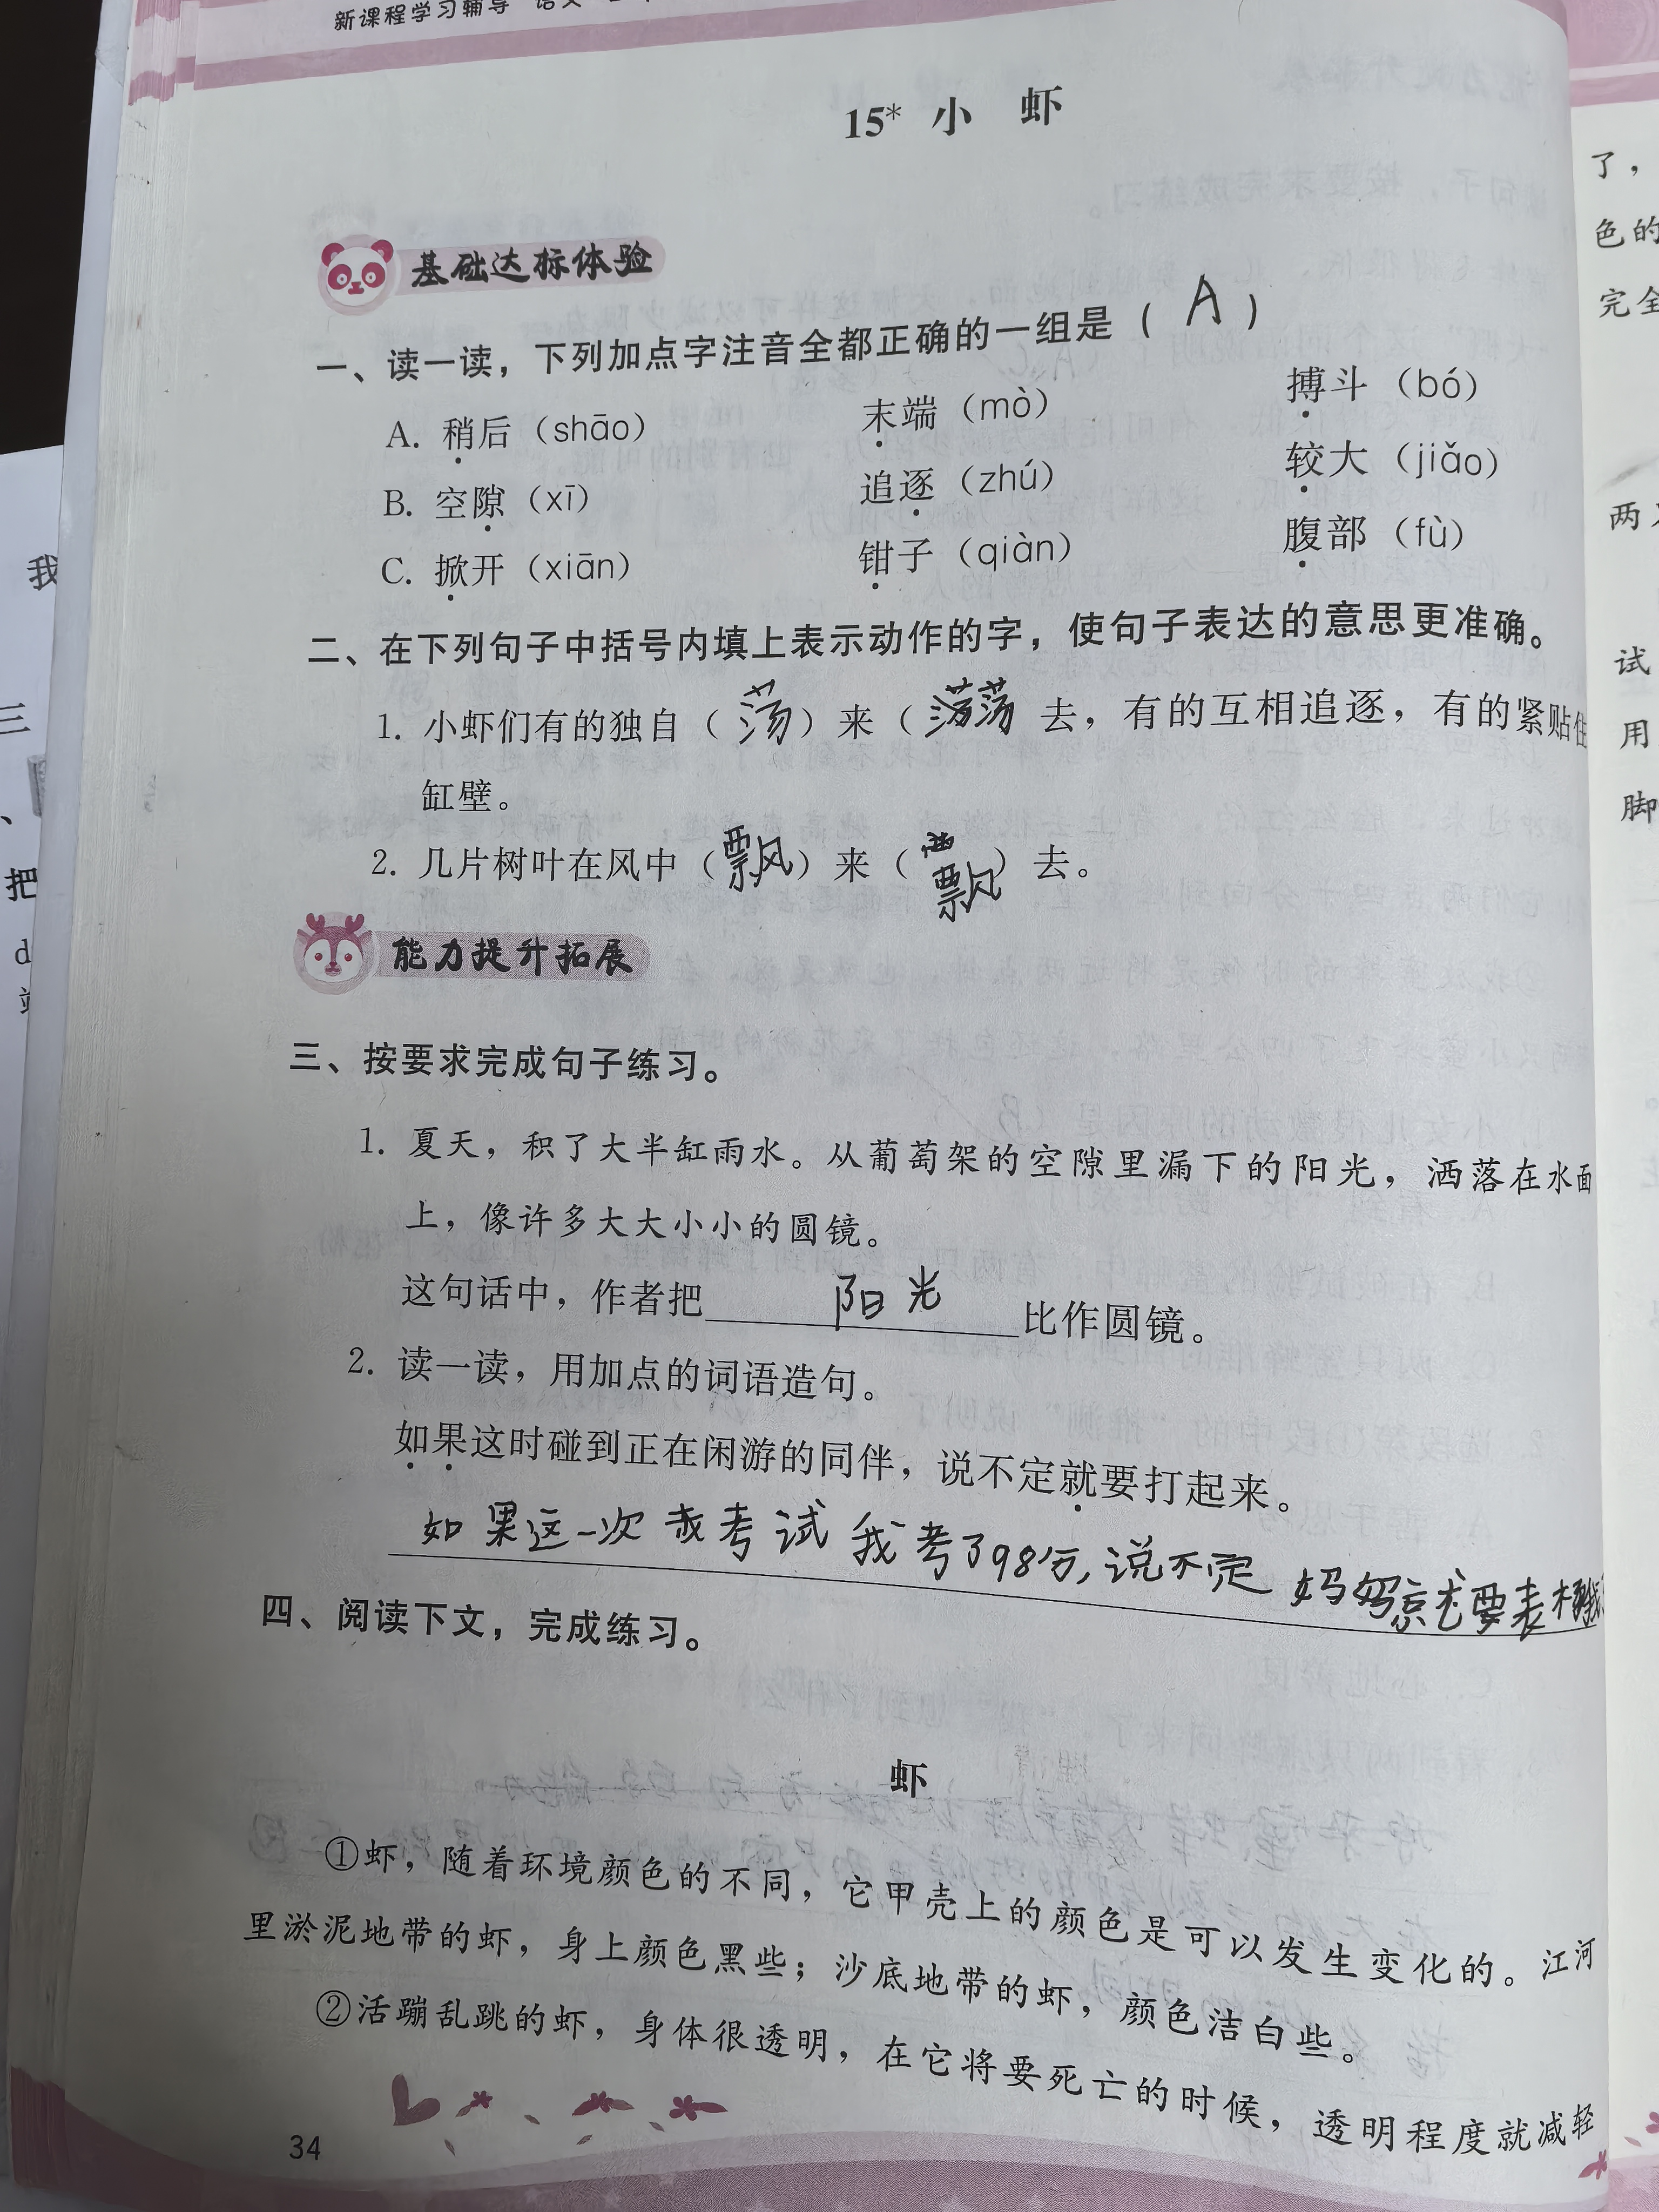 新课程学习辅导 语文
15* 小 虾
基础达标体验
一、读一读，下列加点字注音全都正确的一组是（ A ）
A. 稍后（shāo） 末端（mò） 搏斗（bó）
B. 空隙（xī） 追逐（zhú） 较大（jiǎo）
C. 掀开（xiān） 钳子（qiàn） 腹部（fù）
二、在下列句子中括号内填上表示动作的字，使句子表达的意思更准确。
1. 小虾们有的独自（荡）来（荡 去，有的互相追逐，有的紧贴住
缸壁。
2. 几片树叶在风中（飘）来（飘）去。
能力提升拓展
三、按要求完成句子练习。
1. 夏天，积了大半缸雨水。从葡萄架的空隙里漏下的阳光，洒落在水面
上，像许多大大小小的圆镜。
这句话中，作者把 阳光 比作圆镜。
2. 读一读，用加点的词语造句。
如果这时碰到正在闲游的同伴，说不定就要打起来。
如果这一次考试我考了98分，说不定妈妈就要表
四、阅读下文，完成练习。
虾
①虾，随着环境颜色的不同，它甲壳上的颜色是可以发生变化的。江河
里淤泥地带的虾，身上颜色黑些；沙底地带的虾，颜色洁白些。
②活蹦乱跳的虾，身体很透明，在它将要死亡的时候，透明程度就减轻
34
我
三
、
把
了，
色的
完全
两
试
用
脚